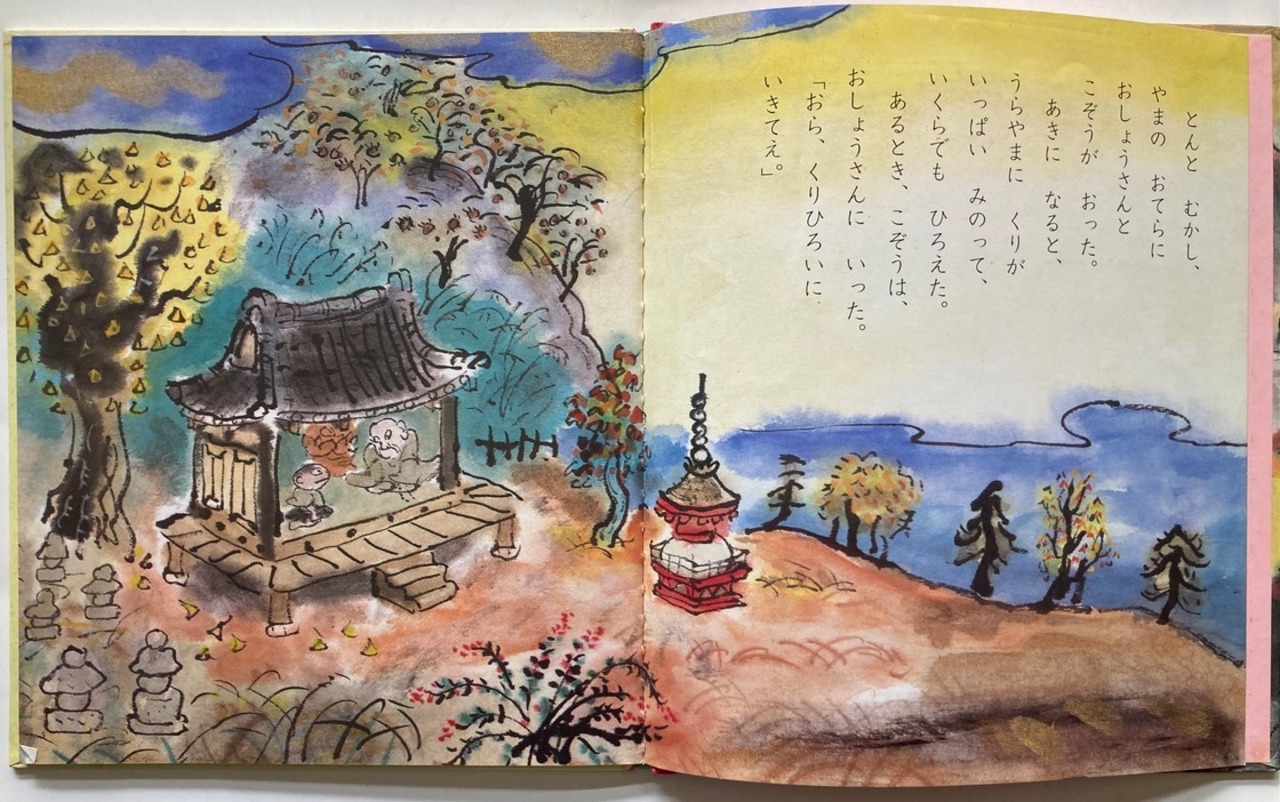 とんと　むかし、
やまの　おてらに
おしょうさんと
こぞうが　おった。
あきに　なると、
うらやまに　くりが
いっぱい　みのって、
いくらでも　ひろえた。
あるとき、こぞうは、
おしょうさんに　いった。
「おら、くりひろいに
いきてえ。」